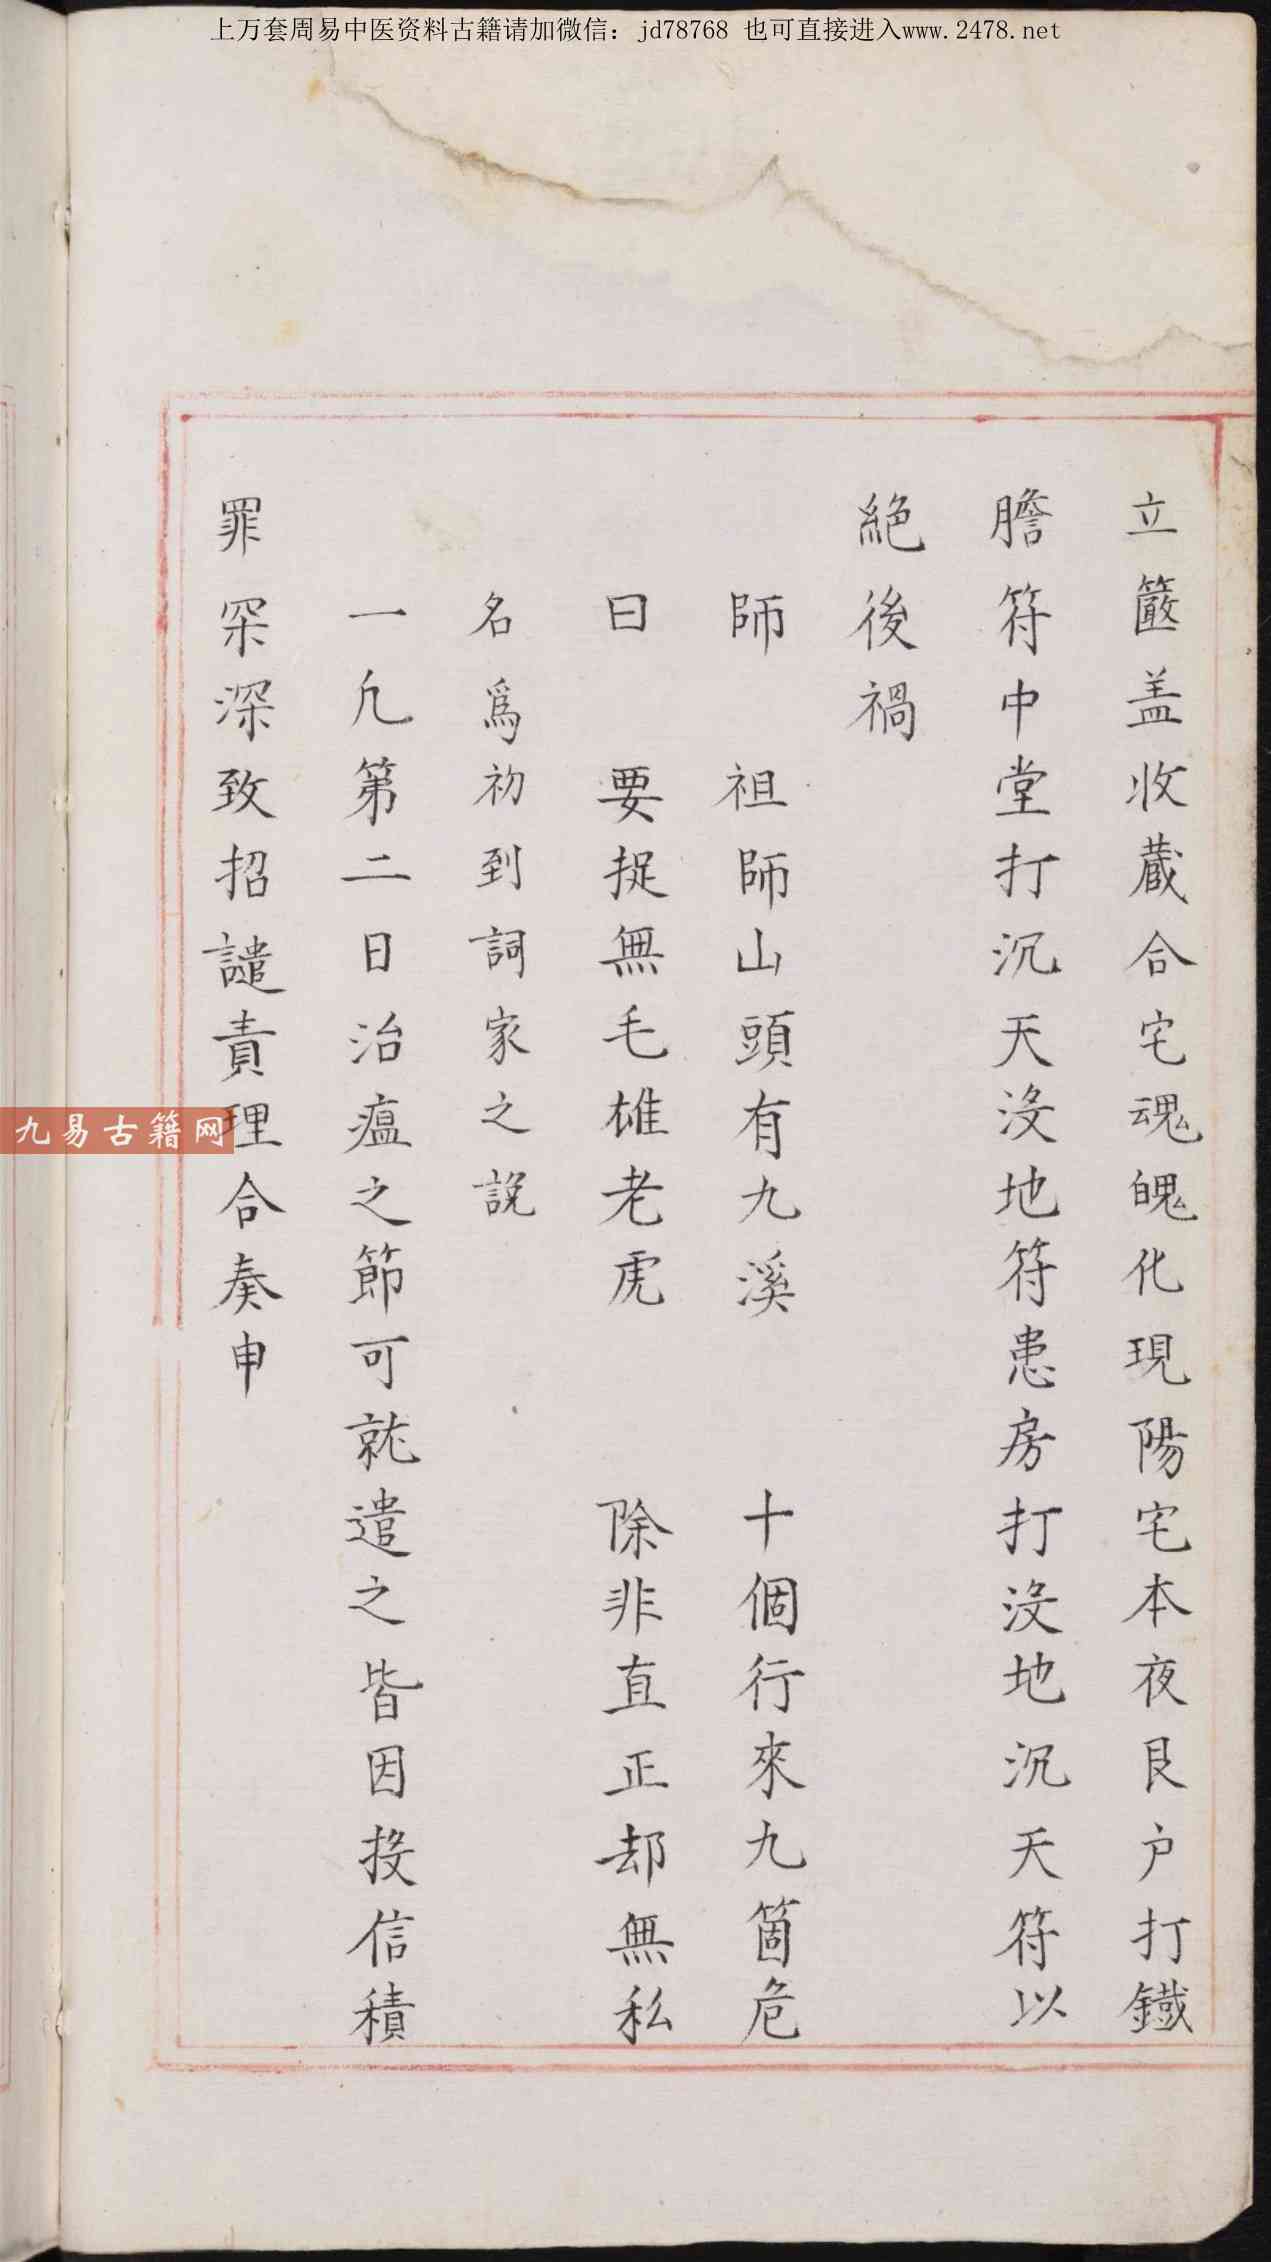 上万套周易中医资料古籍请加微信：jd78768 也可直接进入www.2478.net
立 盖收蔵合宅魂魄化現陽宅本夜艮户打鐵
膽符中堂打沉天沒地符患房打沒地沉天符以
絕後禍
師 祖師山頭有九溪 十個行來九箇危
曰 要捉無毛雄老虎 除非直正却無私
名爲初到詞家之說
一凡第二日治瘟之節可就遣之皆因投信積
罪罙深致招譴責理合奏申
九易古籍网